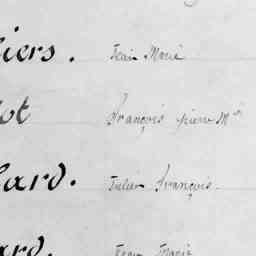 iers. Jean Marie
ot François pierre M.ie
ard. Julien François.
ard. Jean Marie